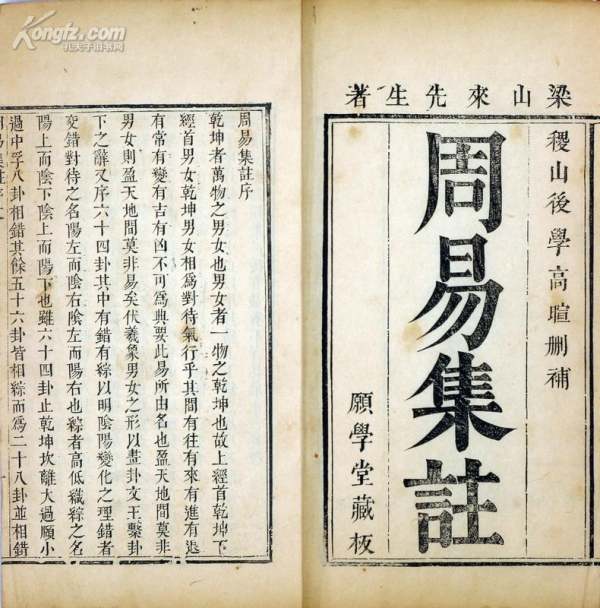 梁山來先生著
稷山後學高暄删補
周易集註
願學堂藏板
周易集註序
乾坤者萬物之男女也男女者一物之乾坤也故上經首乾坤下
經首男女乾坤男女相爲對待氣行乎其間有往有來有進有退
有常有變有吉有凶不可爲典要此易所由名也盈天地間莫非
男女則盈天地間莫非易矣伏羲象男女之形以畫卦文王繫卦
下之辭又序六十四卦其中有錯有綜以明陰陽變化之理錯者
交錯對待之名陽左而陰右陰左而陽右也綜者高低織綜之名
陽上而陰下陰上而陽下也雖六十四卦止乾坤坎離大過頤小
過中孚八卦相錯其餘五十六卦皆相綜而爲二十八卦並相錯
周易集註序
Kongfz.com
孔夫子旧书网